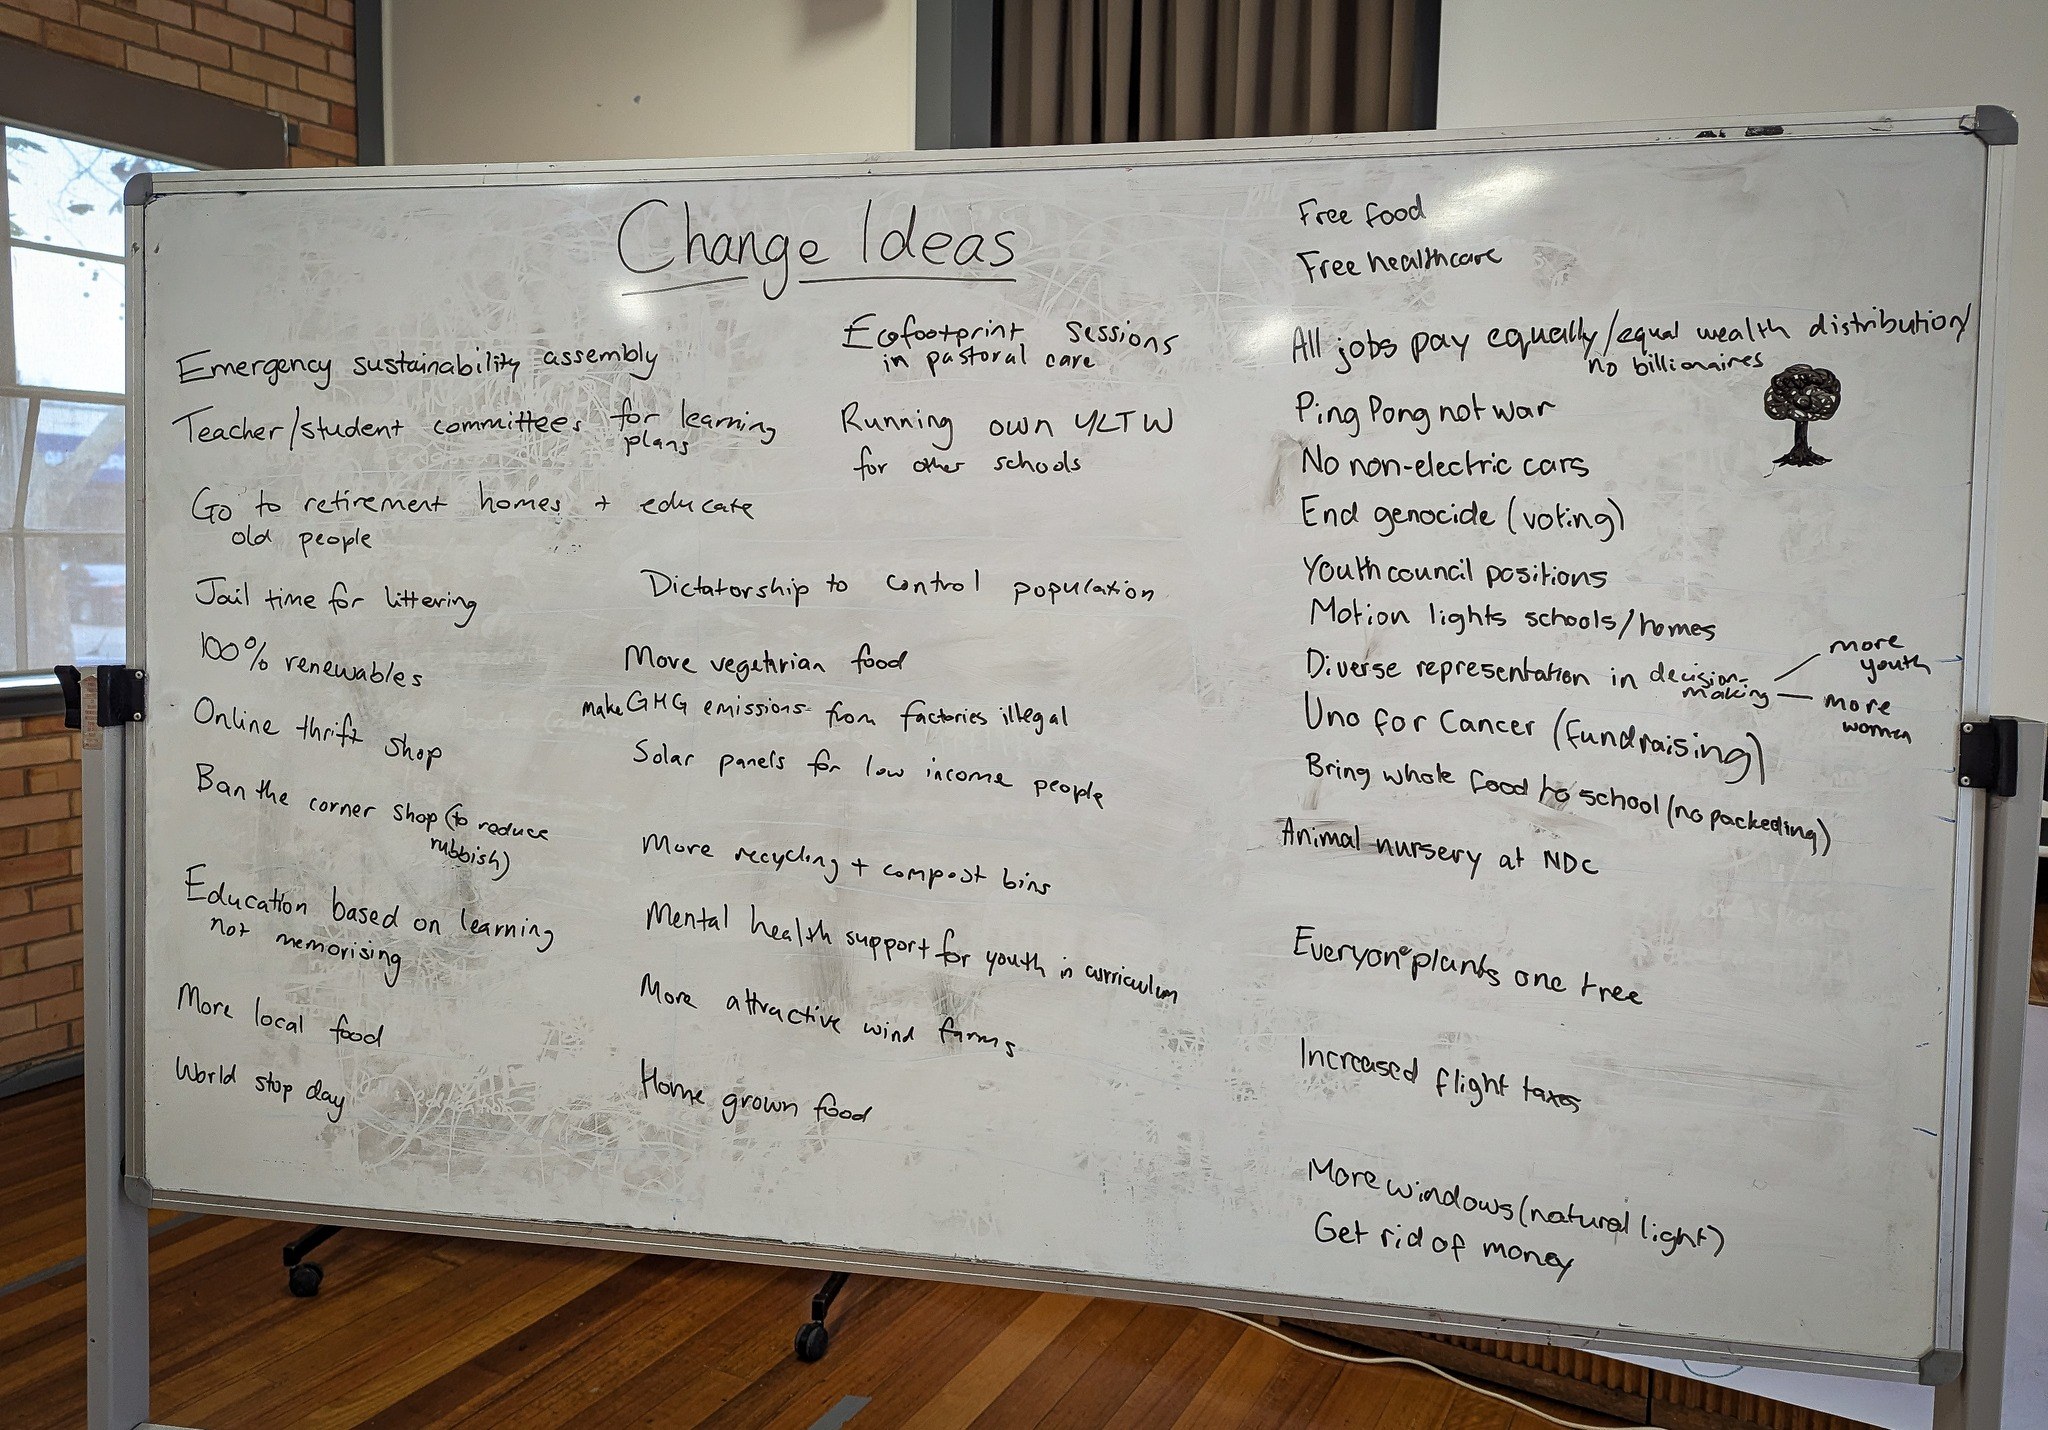 Change Ideas
Emergency sustainability assembly
Teacher/student committees for learning
plans
Go to retirement homes + educate
old people
Jail time for littering
100% renewables
Online thrift shop
Ban the corner shop (to reduce
rubbish)
Education based on learning
not memorising
More local food
World stop day
Ecofootprint sessions
in pastoral care
Running own YLTW
for other schools
Dictatorship to control population
More vegetarian food
make GHG emissions from factories illegal
Solar panels for low income people
More recycling + compost bins
Mental health support for youth in curriculum
More attractive wind farms
Home grown food
Free food
Free healthcare
All jobs pay equally/equal wealth distribution/
no billionaires
Ping Pong not war
No non-electric cars
End genocide (voting)
Youth council positions
Motion lights schools/homes
Diverse representation in decision-
making
more
youth
more
women
Uno for Cancer (fundraising)
Bring whole food to school (no packeding)
Animal nursery at NDC
Everyone plants one tree
Increased flight taxes
More windows (natural light)
Get rid of money